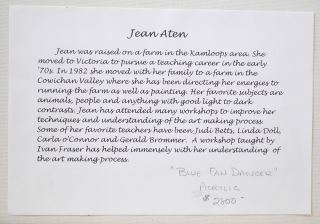 Jean Aten
Jean was raised on a farm in the Kamloops area. She
moved to Victoria to pursue a teaching career in the early
'70s. In 1982 she moved with her family to a farm in the
Cowichan Valley where she has been directing her energies to
running the farm as well as painting. Her favorite subjects are
animals, people and anything with good light to dark
contrasts. Jean has attended many workshops to improve her
techniques and understanding of the art making process.
Some of her favorite teachers have been Judi Betts, Linda Doll,
Carla O'Connor and Gerald Brommer. A workshop taught by
Ivan Fraser has helped immensely with her understanding of
the art making process.
"BLUE FAN DANCER"
ACRYLIC
$ 2800